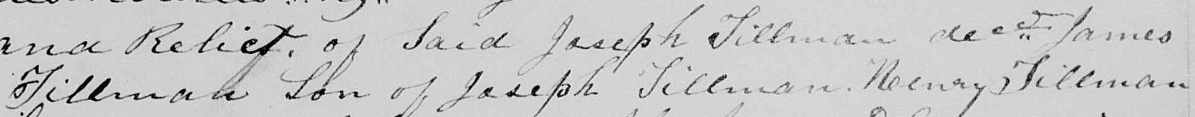 and Relict, of Said Joseph Tillman dec^d. James
Tillman Son of Joseph Tillman. Henry Tillman